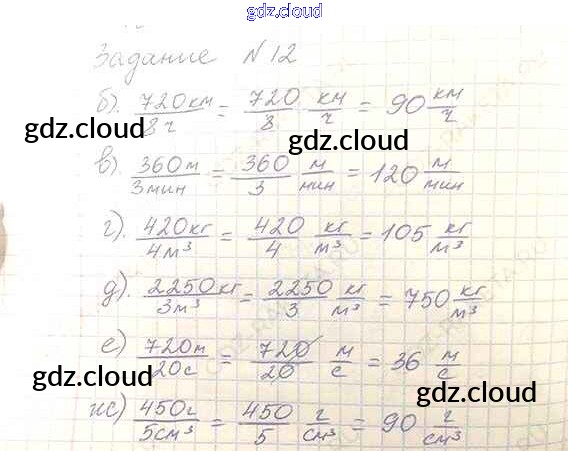 gdz.cloud
Задание №12
б). 720км/8ч = 720/8 км/ч = 90 км/ч
gdz.cloud gdz.cloud
в). 360м/3мин = 360/3 м/мин = 120 м/мин
г). 420кг/4м³ = 420/4 кг/м³ = 105 кг/м³
д). 2250кг/3м³ = 2250/3 кг/м³ = 750 кг/м³
е) 720м/20с = 720/20 м/с = 36 м/с
gdz.cloud gdz.cloud
ж) 450г/5см³ = 450/5 г/см³ = 90 г/см³